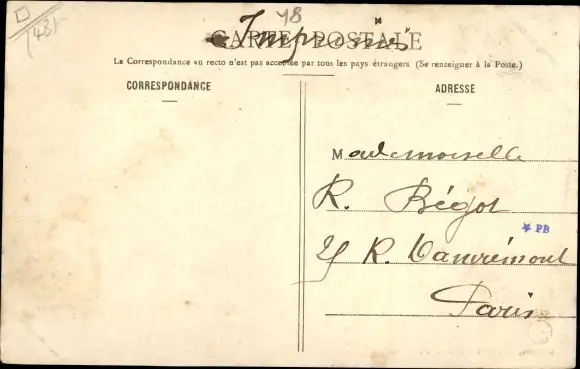 48
(48)
CARTE POSTALE
Imprimés
La Correspondance au recto n'est pas acceptée par tous les pays étrangers (Se renseigner à la Poste.)
CORRESPONDANCE
ADRESSE
Mademoiselle
R. Bégot
PB
R. Damrémont
Paris